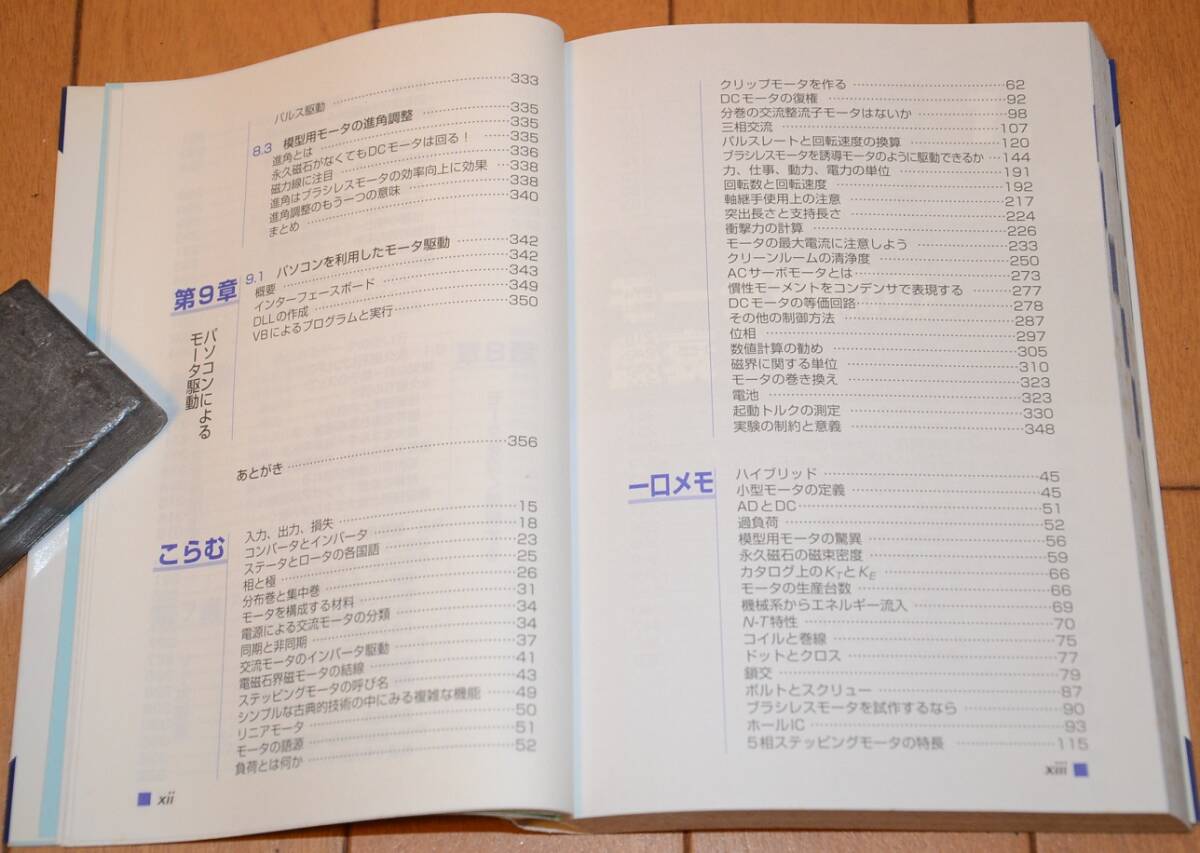 パルス駆動 333
8.3 模型用モータの進角調整 335
進角とは 335
永久磁石がなくてもDCモータは回る! 335
磁力線に注目 336
進角はブラシレスモータの効率向上に効果 338
進角調整のもう一つの意味 338
まとめ 340
第9章 パソコンによるモータ駆動
9.1 パソコンを利用したモータ駆動 342
概要 342
インターフェースボード 343
DLLの作成 349
VBによるプログラムと実行 350
あとがき 356
こらむ
入力、出力、損失 15
コンバータとインバータ 18
ステータとロータの各国語 23
相と極 25
分布巻と集中巻 26
モータを構成する材料 31
電源による交流モータの分類 34
同期と非同期 34
交流モータのインバータ駆動 37
電磁石界磁モータの結線 41
ステッピングモータの呼び名 43
シンプルな古典的技術の中にみる複雑な機能 49
リニアモータ 50
モータの語源 51
負荷とは何か 52
xii
クリップモータを作る 62
DCモータの復権 92
分巻の交流整流子モータはないか 98
三相交流 107
パルスレートと回転速度の換算 120
ブラシレスモータを誘導モータのように駆動できるか 144
力、仕事、動力、電力の単位 191
回転数と回転速度 192
軸継手使用上の注意 217
突出長さと支持長さ 224
衝撃力の計算 226
モータの最大電流に注意しよう 233
クリーンルームの清浄度 250
ACサーボモータとは 273
慣性モーメントをコンデンサで表現する 277
DCモータの等価回路 278
その他の制御方法 287
位相 297
数値計算の勧め 305
磁界に関する単位 310
モータの巻き換え 323
電池 323
起動トルクの測定 330
実験の制約と意義 348
一口メモ
ハイブリッド 45
小型モータの定義 45
ADとDC 51
過負荷 52
模型用モータの驚異 56
永久磁石の磁束密度 59
カタログ上のKTとKE 66
モータの生産台数 66
機械系からエネルギー流入 69
N-T特性 70
コイルと巻線 75
ドットとクロス 77
鎖交 79
ボルトとスクリュー 87
ブラシレスモータを試作するなら 90
ホールIC 93
5相ステッピングモータの特長 115
xiii